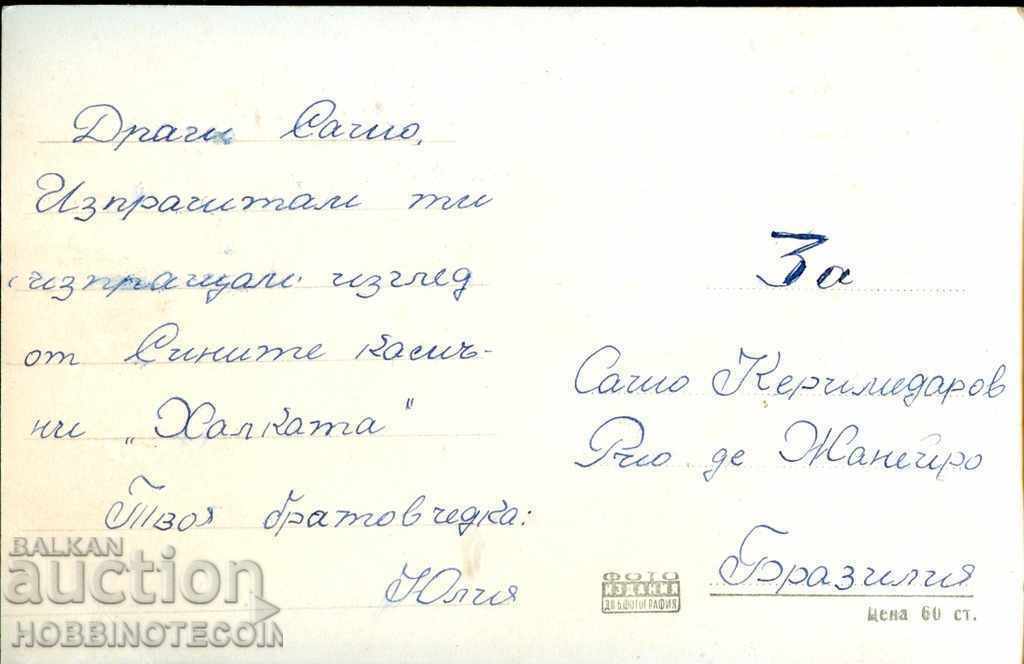 Драги Сашо,
Изпрачитам ти
изпращам изглед
от Сините камъ-
ни „Халката"
Твоя братовчедка:
Юлия
За
Сашо Керимидаров
Рио де Жанейро
Бразилия
ФОТО
ИЗДАНИЯ
ДП Б.ФОТОГРАФИЯ
Цена 60 ст.
BALKAN
auction
HOBBINOTECOIN